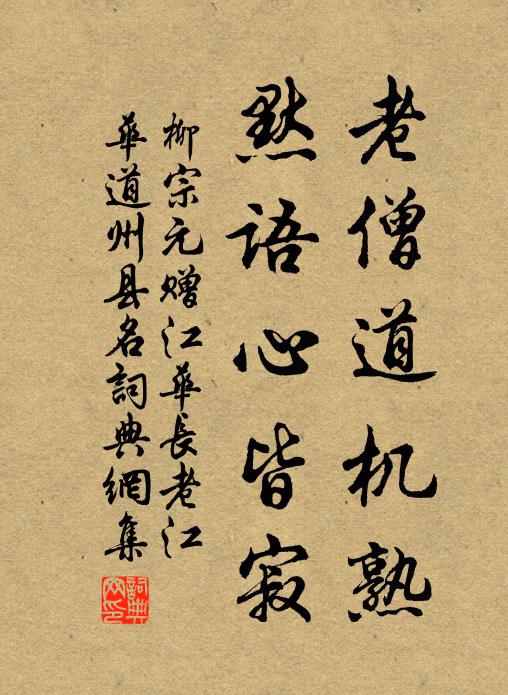 老僧道机熟
默语心皆寂
柳宗元赠江华长老江
华道州县名词典网集
词典网印